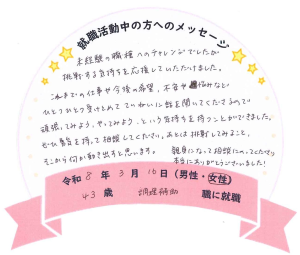 就職活動中の方へのメッセージ
未経験の職種へのチャレンジでしたが
挑戦する気持ちを応援していただけました。
これまでの仕事や今後の希望、不安や悩みなど
ひとりひとり受けとめて ていねいに話を聞いてくださるので
頑張ってみよう、やってみよう、という気持ちを持つことができました。
ぜひ勇気を持って相談してください。あとは挑戦してみること、
そこから何か動き出すと思います。
親身になって相談にのってくださり
本当にありがとうございました!
令和 8 年 3 月 16 日(男性・女性)
43 歳 調理補助 職に就職